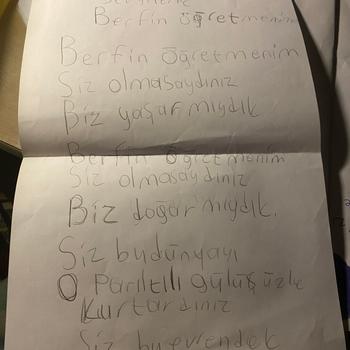 Berfin öğretmenim
Berfin Öğretmenim
Siz olmasaydınız
Biz yaşar mıydık
Berfin Öğretmenim
Siz olmasaydınız
Biz doğar mıydık.
Siz budünyayı
O Parıltılı gülüşüzle
Kurtardınız
Siz buevrendek